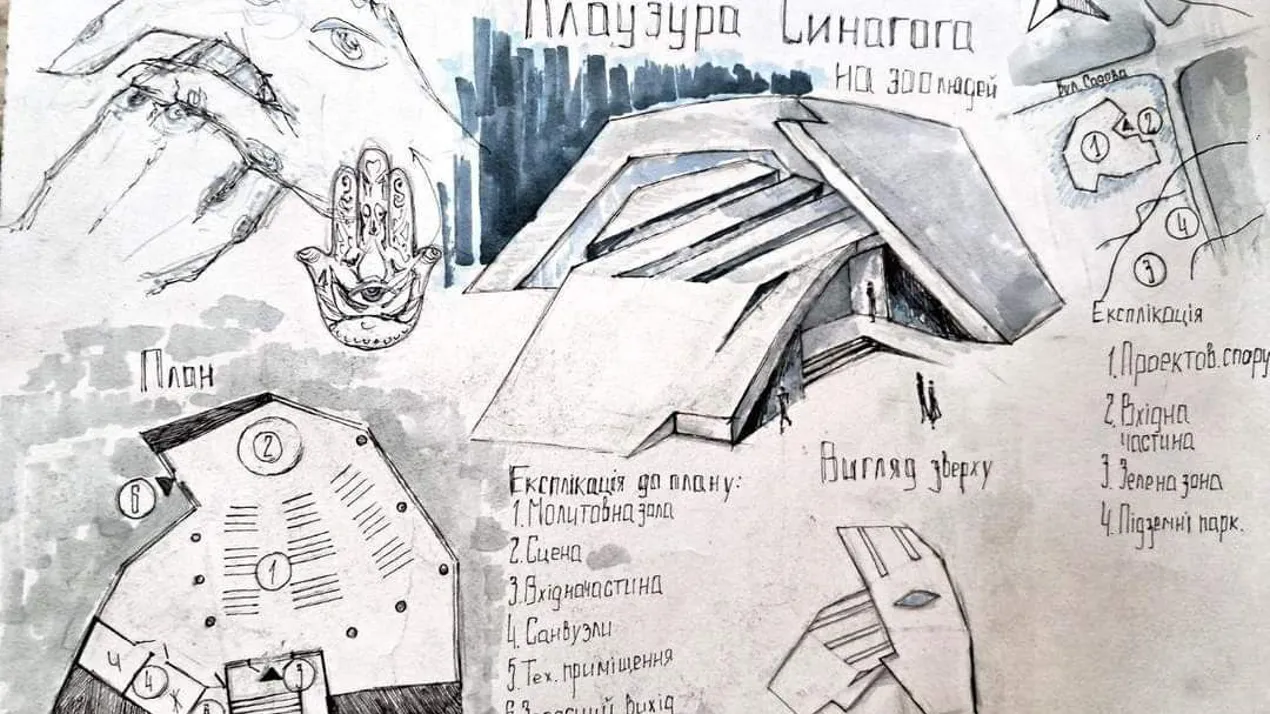 Клаузура Синагога
на 300 людей
вул. Садова
1
2
4
3
Експлікація
1.Проектов.спору
2.Вхідна
частина
3.Зелена зона
4.Підземні парк.
План
2
6
1
Ч
4
Ж
3
Експлікація до плану:
1.Молитовна зала
2.Сцена
3.Вхідна частина
4.Санвузли
5.Тех. приміщення
6.Запасний вихід
Вигляд зверху